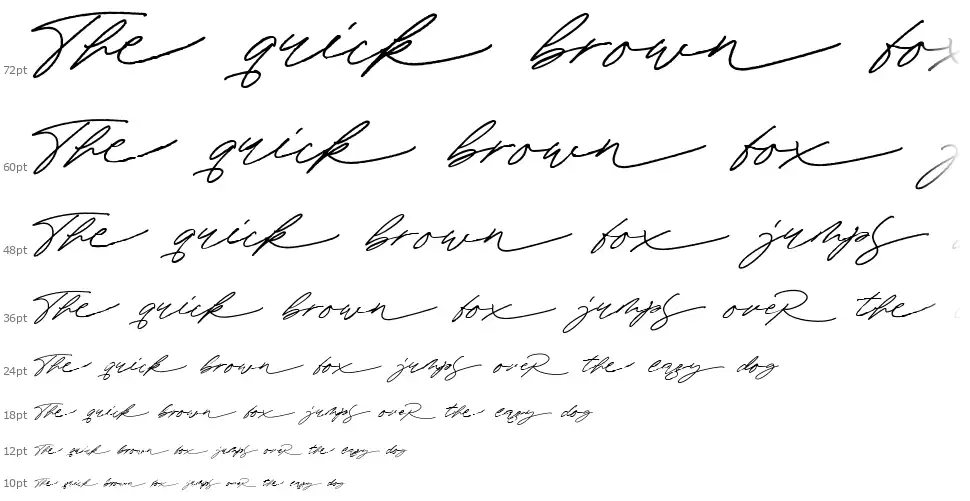 72pt The quick brown fox
60pt The quick brown fox j
48pt The quick brown fox jumps
36pt The quick brown fox jumps over the
24pt The quick brown fox jumps over the eazy dog
18pt The quick brown fox jumps over the eazy dog
12pt The quick brown fox jumps over the eazy dog
10pt The quick brown fox jumps over the eazy dog